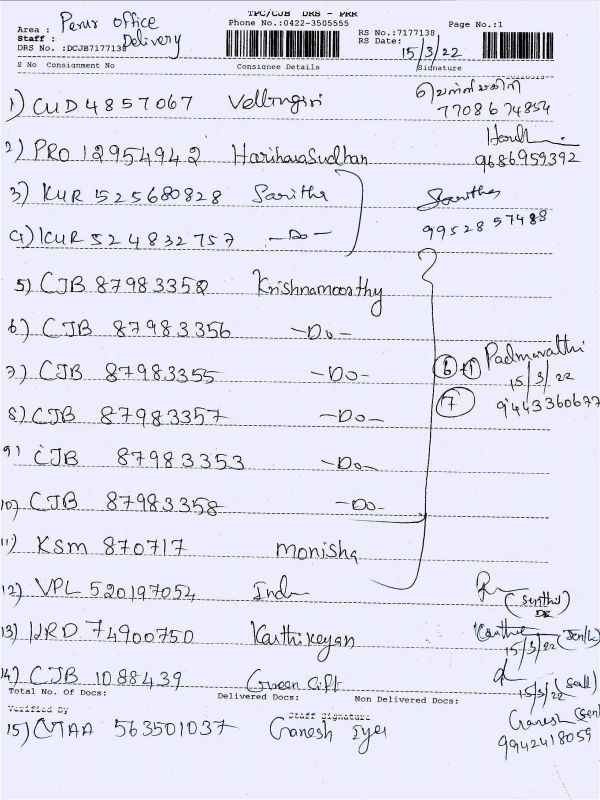 TPC/CJB DRS - PRR
Area : Perur office
Phone No.:0422-3505555
Page No.:1
Staff : Delivery
RS No.:7177138
DRS No. :DCJB7177138
RS Date: 15/3/22
S No Consignment No Consignee Details Signature
1) CUD 4857067 Vellingiri வெள்ளிங்கிரி
7708674854
2) PRO 12954942 Hariharasudhan
9686959392
3) KUR 525680828 Saritha Saritha
4) KUR 524832757 -Do- 9952857488
5) CJB 87983352 Krishnamoorthy
6) CJB 87983356 -Do-
6 +1 Padmavathi
7) CJB 87983355 -Do- 15/3/22
7 9443360677
8) CJB 87983357 -Do-
9) CJB 87983353 -Do-
10) CJB 87983358 -Do-
11) KSM 870717 Monisha
12) VPL 520197054 Indu (Senthil)
13) URD 74900750 Karthikeyan Karthi
15/3/22
14) CJB 1088439 Green Gift
15/3/22
Total No. Of Docs: Delivered Docs: Non Delivered Docs:
Verified By Staff Signature
15) 563501037 Ganesh Iyer Ganesh
9942418059